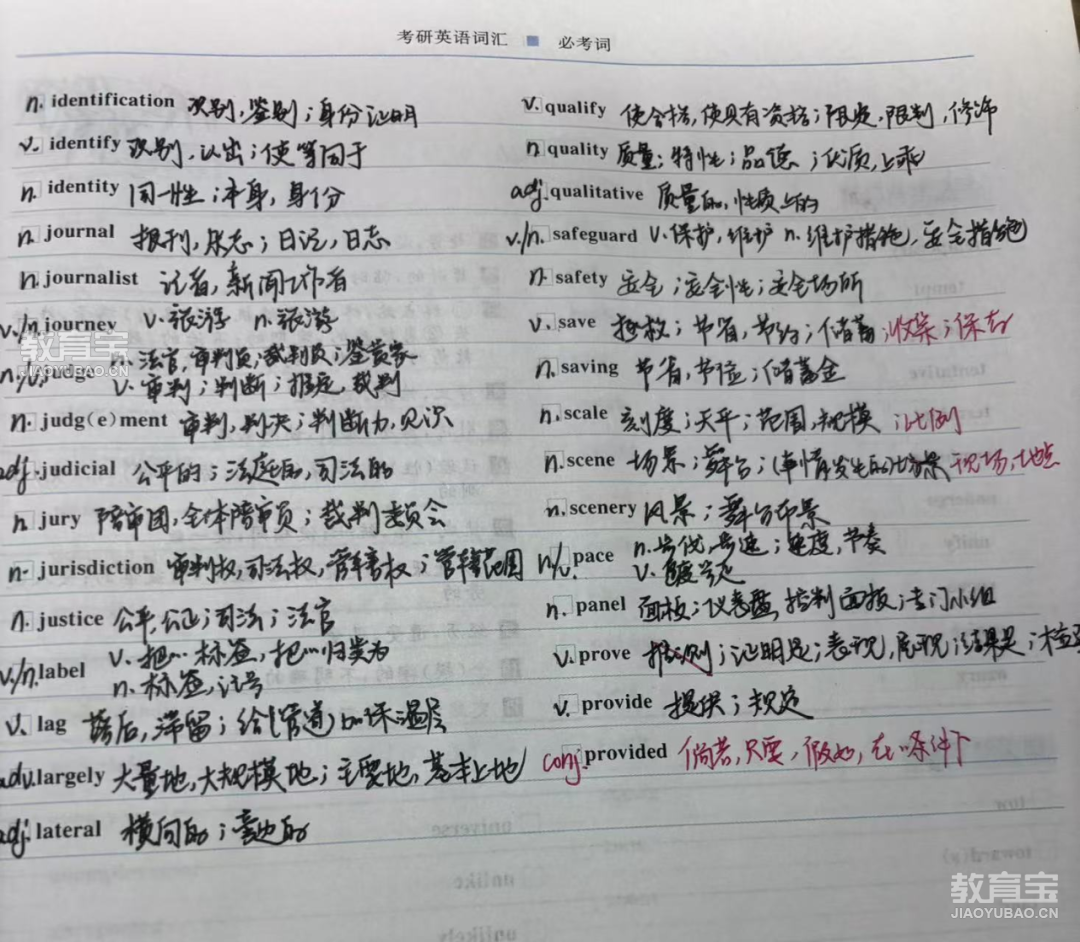 考研英语词汇 ■ 必考词
n. identification 识别,鉴别;身份证明
v. identify 识别,认出;使等同于
n. identity 同一性;本身,身份
n. journal 报刊,杂志;日记,日志
n. journalist 记者,新闻工作者
v./n. journey v.旅游 n.旅游
n./v. judge n.法官,审判员;裁判员;鉴赏家
v.审判;判断;推定,裁判
n. judg(e)ment 审判,判决;判断力,见识
adj. judicial 公平的;法庭的,司法的
n. jury 陪审团,全体陪审员;裁判委员会
n. jurisdiction 审判权,司法权,管辖权;管辖范围
n. justice 公平,公正;司法;法官
v./n. label v.把…标签,把…归类为
n.标签,记号
v. lag 落后,滞留;给(管道)加保温层
adv. largely 大量地,大规模地;主要地,基本上地
adj. lateral 横向的;旁边的
v. qualify 使合格,使具有资格;限定,限制,修饰
n. quality 质量;特性;品德;优质,上乘
adj. qualitative 质量的,性质上的
v./n. safeguard v.保护,维护 n.维护措施,安全措施
n. safety 安全;安全性;安全场所
v. save 拯救;节省,节约;储蓄;收集;保存
n. saving 节省,节俭;储蓄金
n. scale 刻度;天平;范围,规模;比例
n. scene 场景;舞台;(事情发生的)场景 现场,地点
n. scenery 风景;舞台布景
n./v. pace n.步伐,步速;速度,节奏
v.踱步
n. panel 面板;仪表盘,控制面板;专门小组
v. prove 证明是;表现,展现;结果是;
v. provide 提供;规定
conj. provided 倘若,只要,假如,在…条件下
tempt
tentative
unify
universe
unlike
unlikely
toward(s)
教育宝
教育宝
JIAOYUBAO.CN